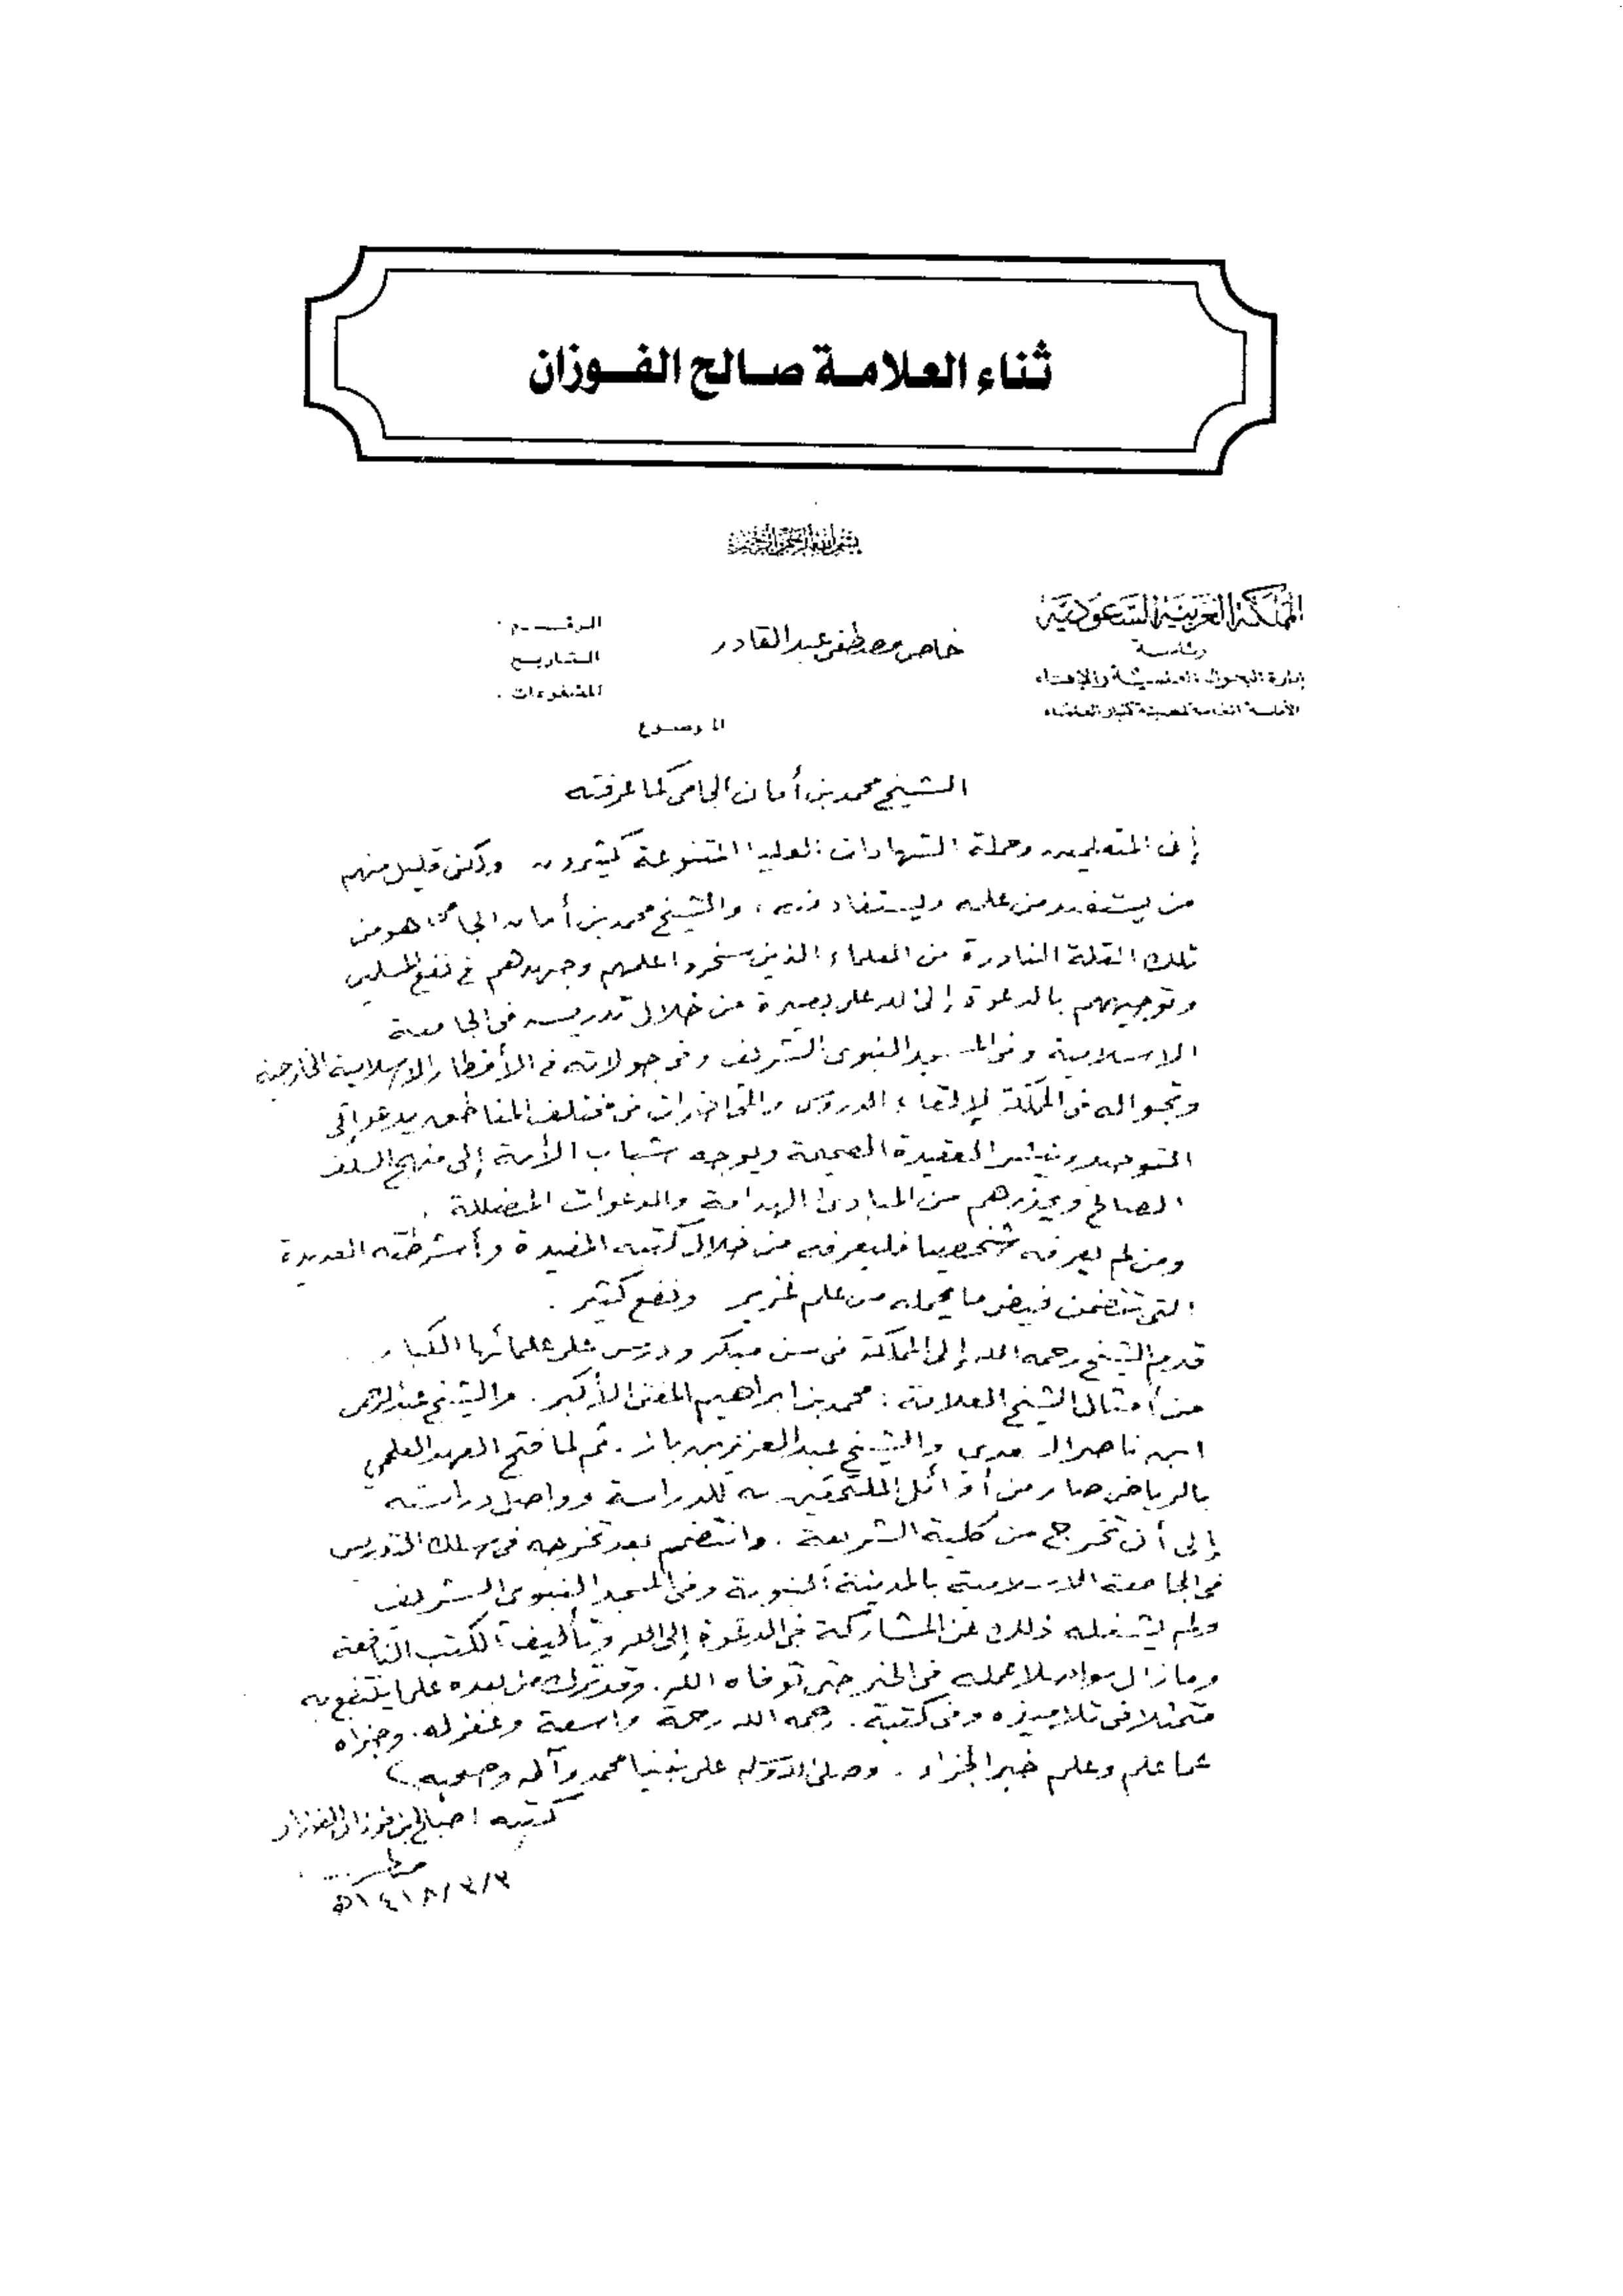 ثناء العلامة صالح الفوزان
بسم الله الرحمن الرحيم
المملكة العربية السعودية
رئاسة
إدارة البحوث العلمية والإفتاء
الأمانة العامة لهيئة كبار العلماء
خاص مصطفى عبد القادر
الرقم
التاريخ
المشفوعات
الموضوع
الشيخ محمد بن أمان الجامي كما عرفته
إن المتعلمين وحملة الشهادات العليا المتنوعة كثيرون ولكن قليل منهم
من يستفيد من علمه ويستفاد منه، والشيخ محمد بن أمان الجامي هو من
تلك القلة النادرة من العلماء الذين سخروا علمهم وجهدهم في نفع المسلمين
وتوجيههم بالدعوة إلى الله على بصيرة من خلال تدريسه في الجامعة
الإسلامية وفي المسجد النبوي الشريف وفي جولاته في الأقطار الإسلامية الخارجية
وتجواله في المملكة لإلقاء الدروس والمحاضرات في مختلف المناطق يدعو إلى
التوحيد وينشر العقيدة الصحيحة ويوجه شباب الأمة إلى منهج السلف
الصالح ويحذرهم من المبادئ الهدامة والدعوات المضللة .
ومن لم يعرفه شخصيا فليعرفه من خلال كتبه المفيدة وأشرطته العديدة
التي تتضمن فيض ما يحمله من علم غزير ونفع كثير .
قدم الشيخ رحمه الله إلى المملكة في سن مبكر ودرس على علمائها الكبار
من أمثال الشيخ العلامة : محمد بن ابراهيم المفتي الأكبر . والشيخ عبد الرحمن
ابن ناصر السعدي والشيخ عبد العزيز بن باز . ثم لما فتح المعهد العلمي
بالرياض صار من أوائل الملتحقين به للدراسة وواصل دراسته
إلى أن تخرج من كلية الشريعة . وانتضم بعد تخرجه في سلك التدريس
في الجامعة الاسلامية بالمدينة النبوية وفي المسجد النبوي الشريف
ولم يشغله ذلك عن المشاركة في الدعوة إلى الله وتأليف الكتب النافعة
وما زال مواصلا عمله في الخير حتى توفاه الله . وقد ترك من بعده علما ينتفع به
متمثلا في تلاميذه وفي كتبه . رحمه الله رحمة واسعة وغفر له . وجزاه
عما علم وعلم خير الجزاء . وصلى الله وسلم على نبينا محمد وآله وصحبه
كتبه : صالح بن فوزان الفوزان
١٤١٨/٣/٣هـ